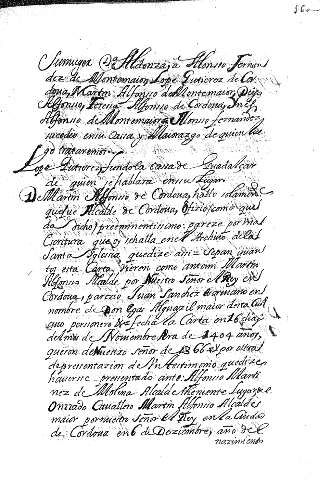 su muger D.ª Aldonza, a Alonso Fernan
dez de Montemaior, Lope Gutierez de Cor
doua, Martin Alfonso de Montemaior, Diego
Alfonso, Teresa Alfonso de Cordoua, Ines
Alfonso de Montemaior, a Alonso fernandez
sucedio en su Casa y Maiorazgo de quien lue
go trataremos
Lope Gutierez fundo la casa de Guadalcazar
de quien se hablara en su lugar
De Martin Alfonso de Cordoua, hallo solamente
que fue Alcalde de Cordoua, oficio (como que
da dicho) preeminentissimo; pareze por una
Escritura que oy se halla en el Archiuo de la
Santa Iglesia que dize asi = Sepan quan
tos esta Carta vieren como ante mi Martin
Alfonso Alcalde por Nuestro Señor el Rey en
Cordoua, parecio Juan Sanchez
nombre de Don
fecha la Carta en 16 dias
del mes de Nouiembre Era de 1404 años,
que son de Nuestro Señor de 1366 y por otra
representacion de Un testimonio que dize
hauerse presentado ante Alfonso Marti
nez de Molina Alcalde theniente Lugar del
Onrrado Cauallero Martin Alfonso Alcalde
maior por nuestro señor el Rey en la Ciudad
de Cordoua en 6 de Deziembre, año de el
nazimiento